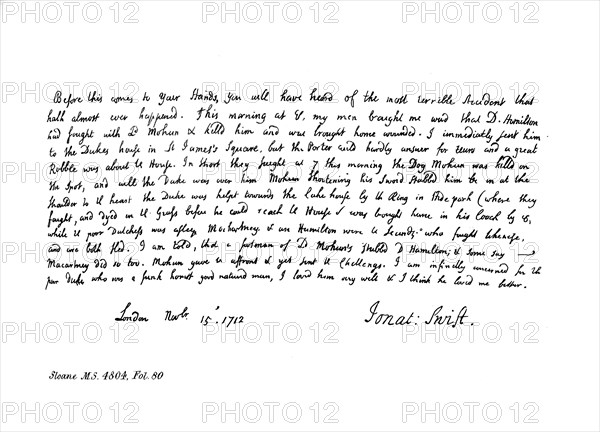 Before this comes to Your Hands, You will have heard of the most terrible Accident that
hath almost ever happened. This morning at 8, my man brought me word that D. Hamilton
had fought with Ld Mohun & killd him and was brought home wounded. I immediatly sent him
to the Dukes house in St James's Square, but the Porter could hardly answer for tears and a great
Rabble was about the House. In short they fought at 7 this morning the Dog Mohun was killd on
the spot, and while the Duke was over him Mohun shortening his Sword stabbed him in at the
shoulder to the heart the Duke was helpt towards the Cake house by the Ring in Hide park (where they
fought, and dyed on the Grass before he could reach the House & was brought home in his Coach by 8,
while the poor Dutchess was asleep. Maccartney & one Hamilton were the Seconds who fought likewise,
and are both fled. I am told, that a footman of Ld Mohun's stabbd D Hamilton; & some say
Macartney did so too. Mohun gave the affront & yet sent the Challenge. I am infinitly concerned for the
poor Duke who was a frank honest good natured man, I loved him very well & I think he loved me better.
London Novbr 15, 1712
Jonat: Swift.
Sloane M.S. 4804, Fol. 80
PHOTO 12